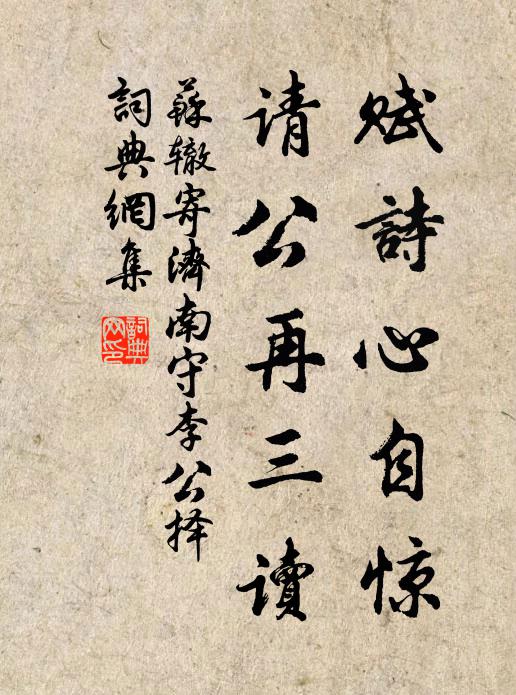 赋詩心自惊
请公再三读
蘇辙寄濟南守李公择
詞典網集
詞典网印